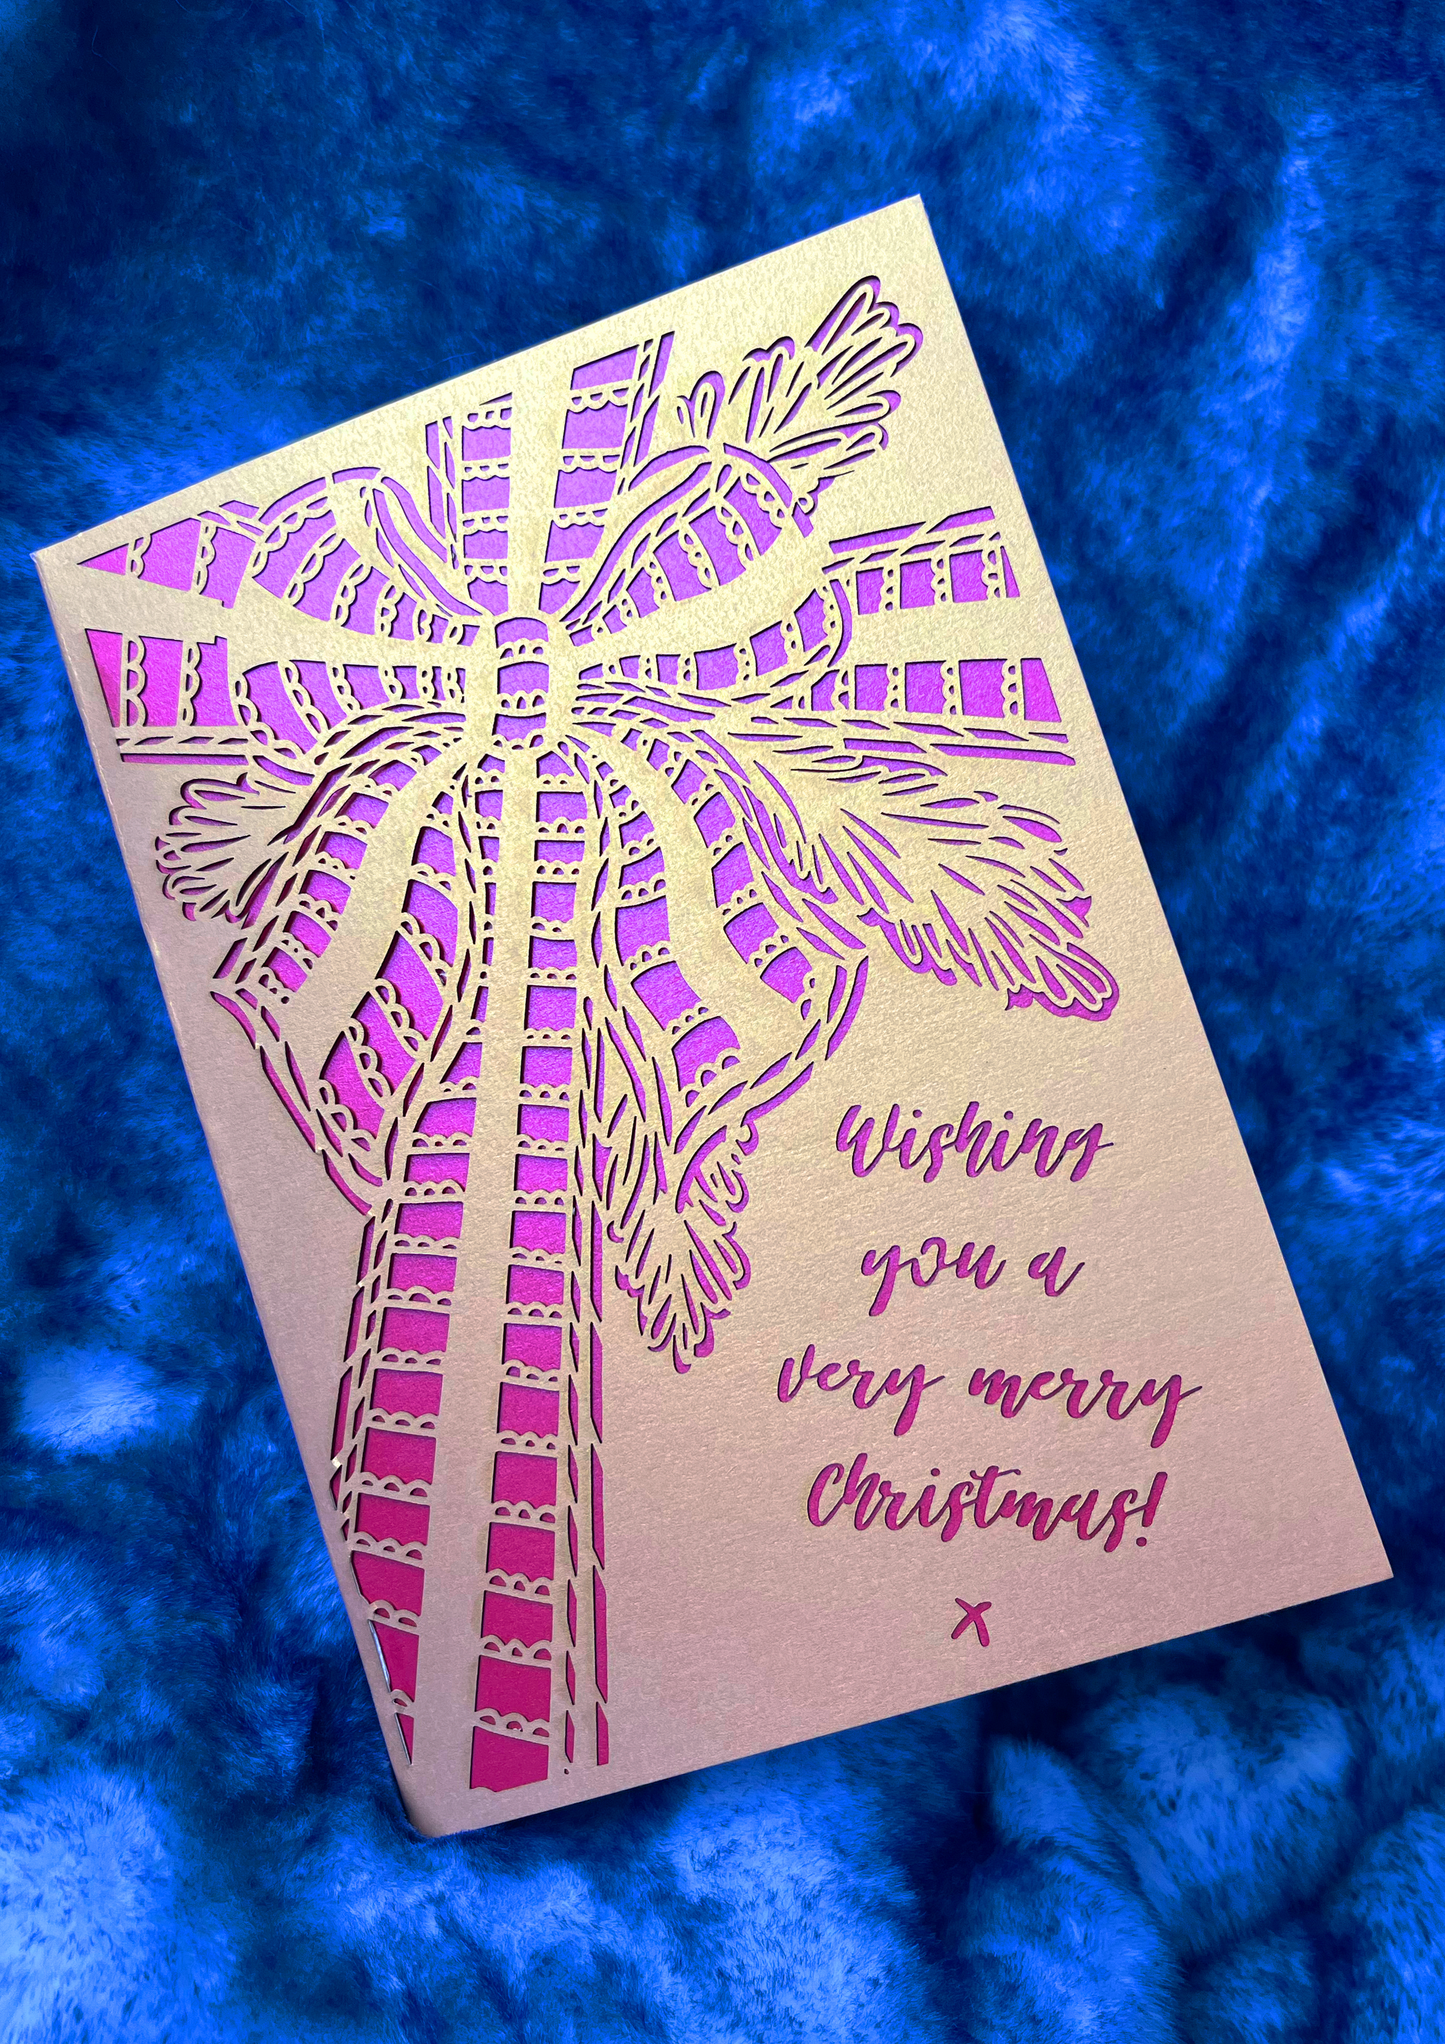 Wishing
you a
very merry
Christmas!
x